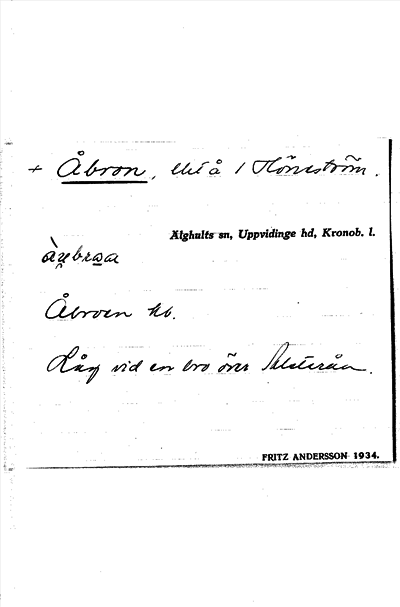 + Åbron, utå / Hönström.
Älghults sn, Uppvidinge hd, Kronob. l.
Åbroen hb.
Låg vid en bro över Alsterån.
FRITZ ANDERSSON 1934.